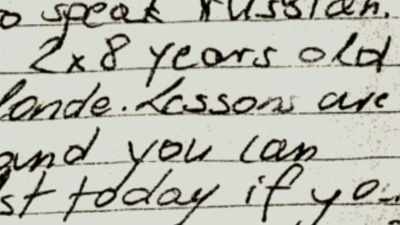 o speak russian.
2x8 years old
londe. Lessons are
and you can
st today if yo